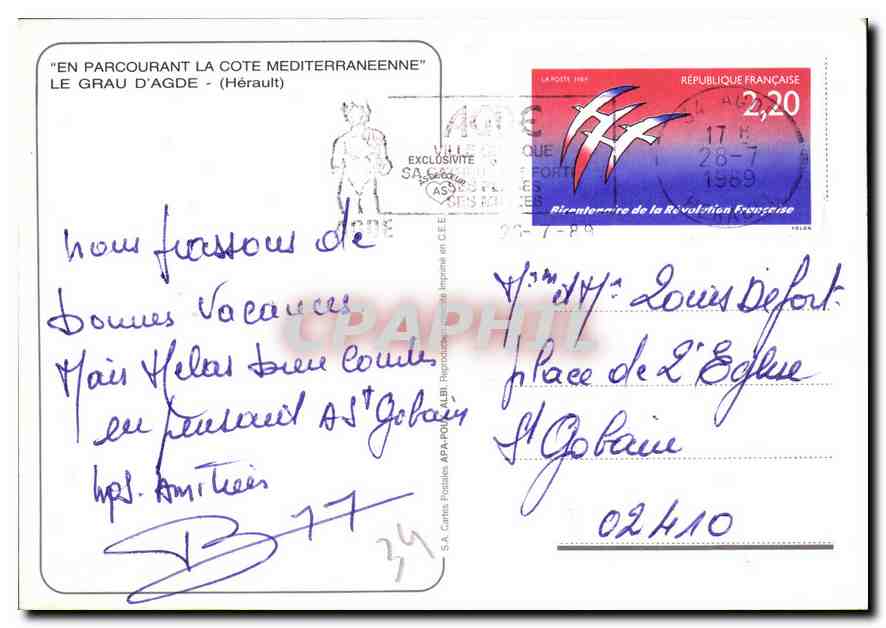 "EN PARCOURANT LA COTE MEDITERRANEENNE"
LE GRAU D'AGDE - (Hérault)
LA POSTE 1989
RÉPUBLIQUE FRANÇAISE
2,20
Bicentenaire de la Révolution Française
FOLON
AGDE
EXCLUSIVITÉ
AS DE CŒUR
AS
AGDE
28-7-89
34 AGDE
17 H
28-7
1989
HERAULT
nous passons de
bonnes Vacances
Mais Helas bien Courtes
en pensant A St Gobain
Amitiés
34
S.A. Cartes Postales APA-POUX ALBI. Reproduction interdite Imprimé en C.E.E.
Mme et Mr Louis Défort
place de L'Eglise
St Gobain
02410
CPAPHIL